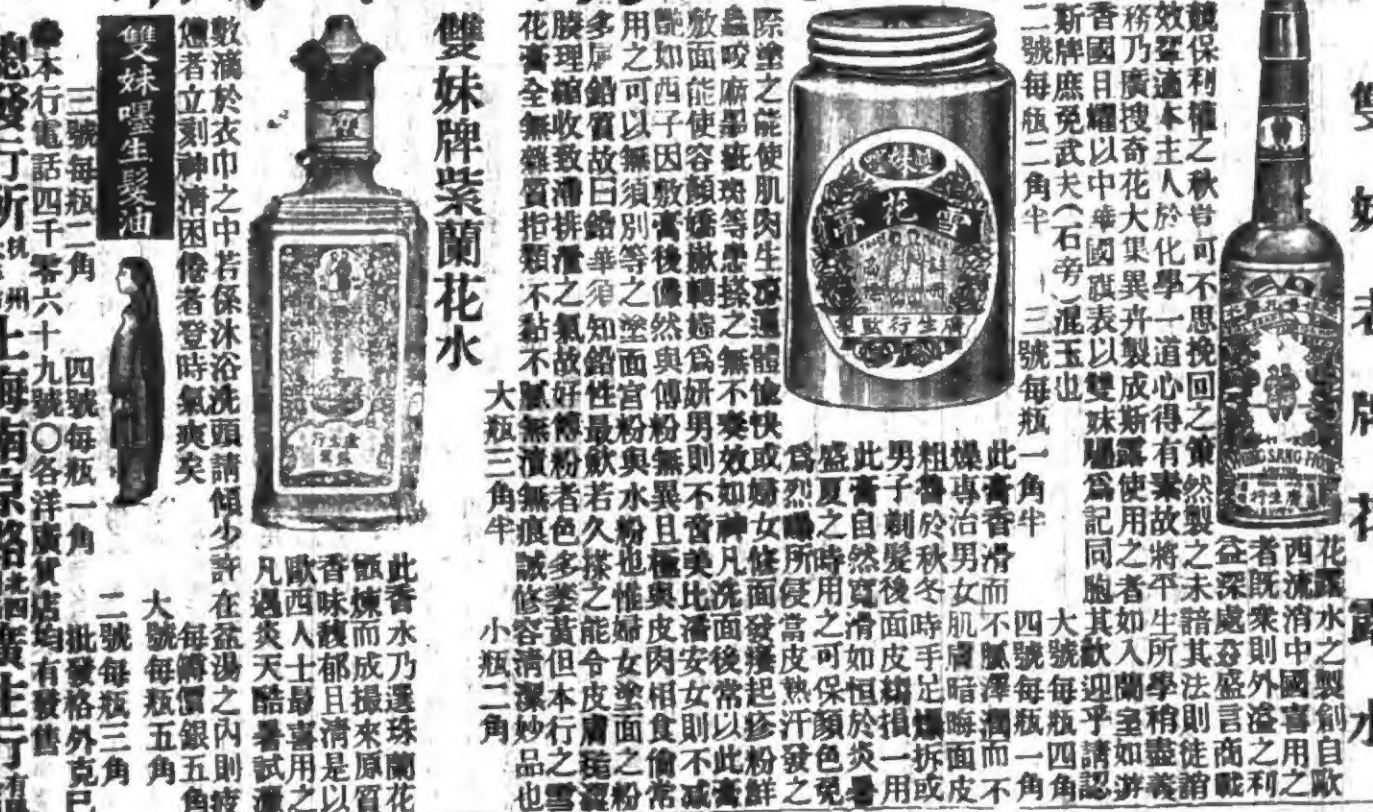 雙妹老牌花露水
花露水之製創自歐
西流消中國喜用之
者既衆則外溢之利
益深處茲盛言商戰
競保利權之秋豈可不思挽回之策然製之未諳其法則徒誚
效顰適本主人於化學一道心得有素故將平生所學稍盡義
務乃廣搜奇花大集異卉製成斯露使用之者如入蘭室如游
香國日耀以中華國旗表以雙妹圖爲記同胞其歡迎乎請認
斯牌庶免武夫(石旁)混玉也 大號每瓶四角
二號每瓶二角半 三號每瓶一角半 四號每瓶一角
KWONG SANG HONG
廣生行
雙妹嘜
雪花膏
廣生行監製
此膏香滑而不膩澤潤而不
燥專治男女肌膚暗晦面皮
粗魯於秋冬時手足燥拆或
男子剃髮後面皮縐損一用
此膏自然寶滑如恒於炎暑
盛夏之時用之可保顏色免
爲烈曝所侵當皮熱汗發之
際塗之能使肌肉生涼遍體愉快或婦女修面發癢起疹粉鮮
蟲咬麻暈疵斑等患搽之無不奏效如神凡洗面後常以此膏
敷面能使容顏嬌嫩轉媸爲妍男則不啻美比潘安女則不减
艷如西子因敷膏後儼然與傅粉無異且極與皮肉相食倘常
用之可以無須別等之塗面宮粉與水粉也惟婦女塗面之粉
多屬鉛質故曰鉛華須知鉛性最歛若久搽之能令皮膚澀
腠理縮收致滯排洩之氣故好傅粉者色多萎黃但本行之雪
花膏全無雜質指類不黏不膩無漬無痕誠修容清潔妙品也
大瓶三角半 小瓶二角
雙妹牌紫蘭花水
廣生行
此香水乃選珠蘭花
甑煉而成撮來原質
香味馥郁且清是以
歐西人士最喜用之
凡遇炎天酷暑試灑
數滴於衣巾之中若係沐浴洗頭請傾少許在盆湯之內則疲
憊者立刻神清困倦者登時氣爽矣 每罇價銀五角
雙妹嚜生髮油
大號每瓶五角 二號每瓶三角
三號每瓶二角 四號每瓶一角 批發格外克已
本行電話四千零六十九號〇各洋廣貨店均有發售
總發行所 杭州 上海南京路 廣生行